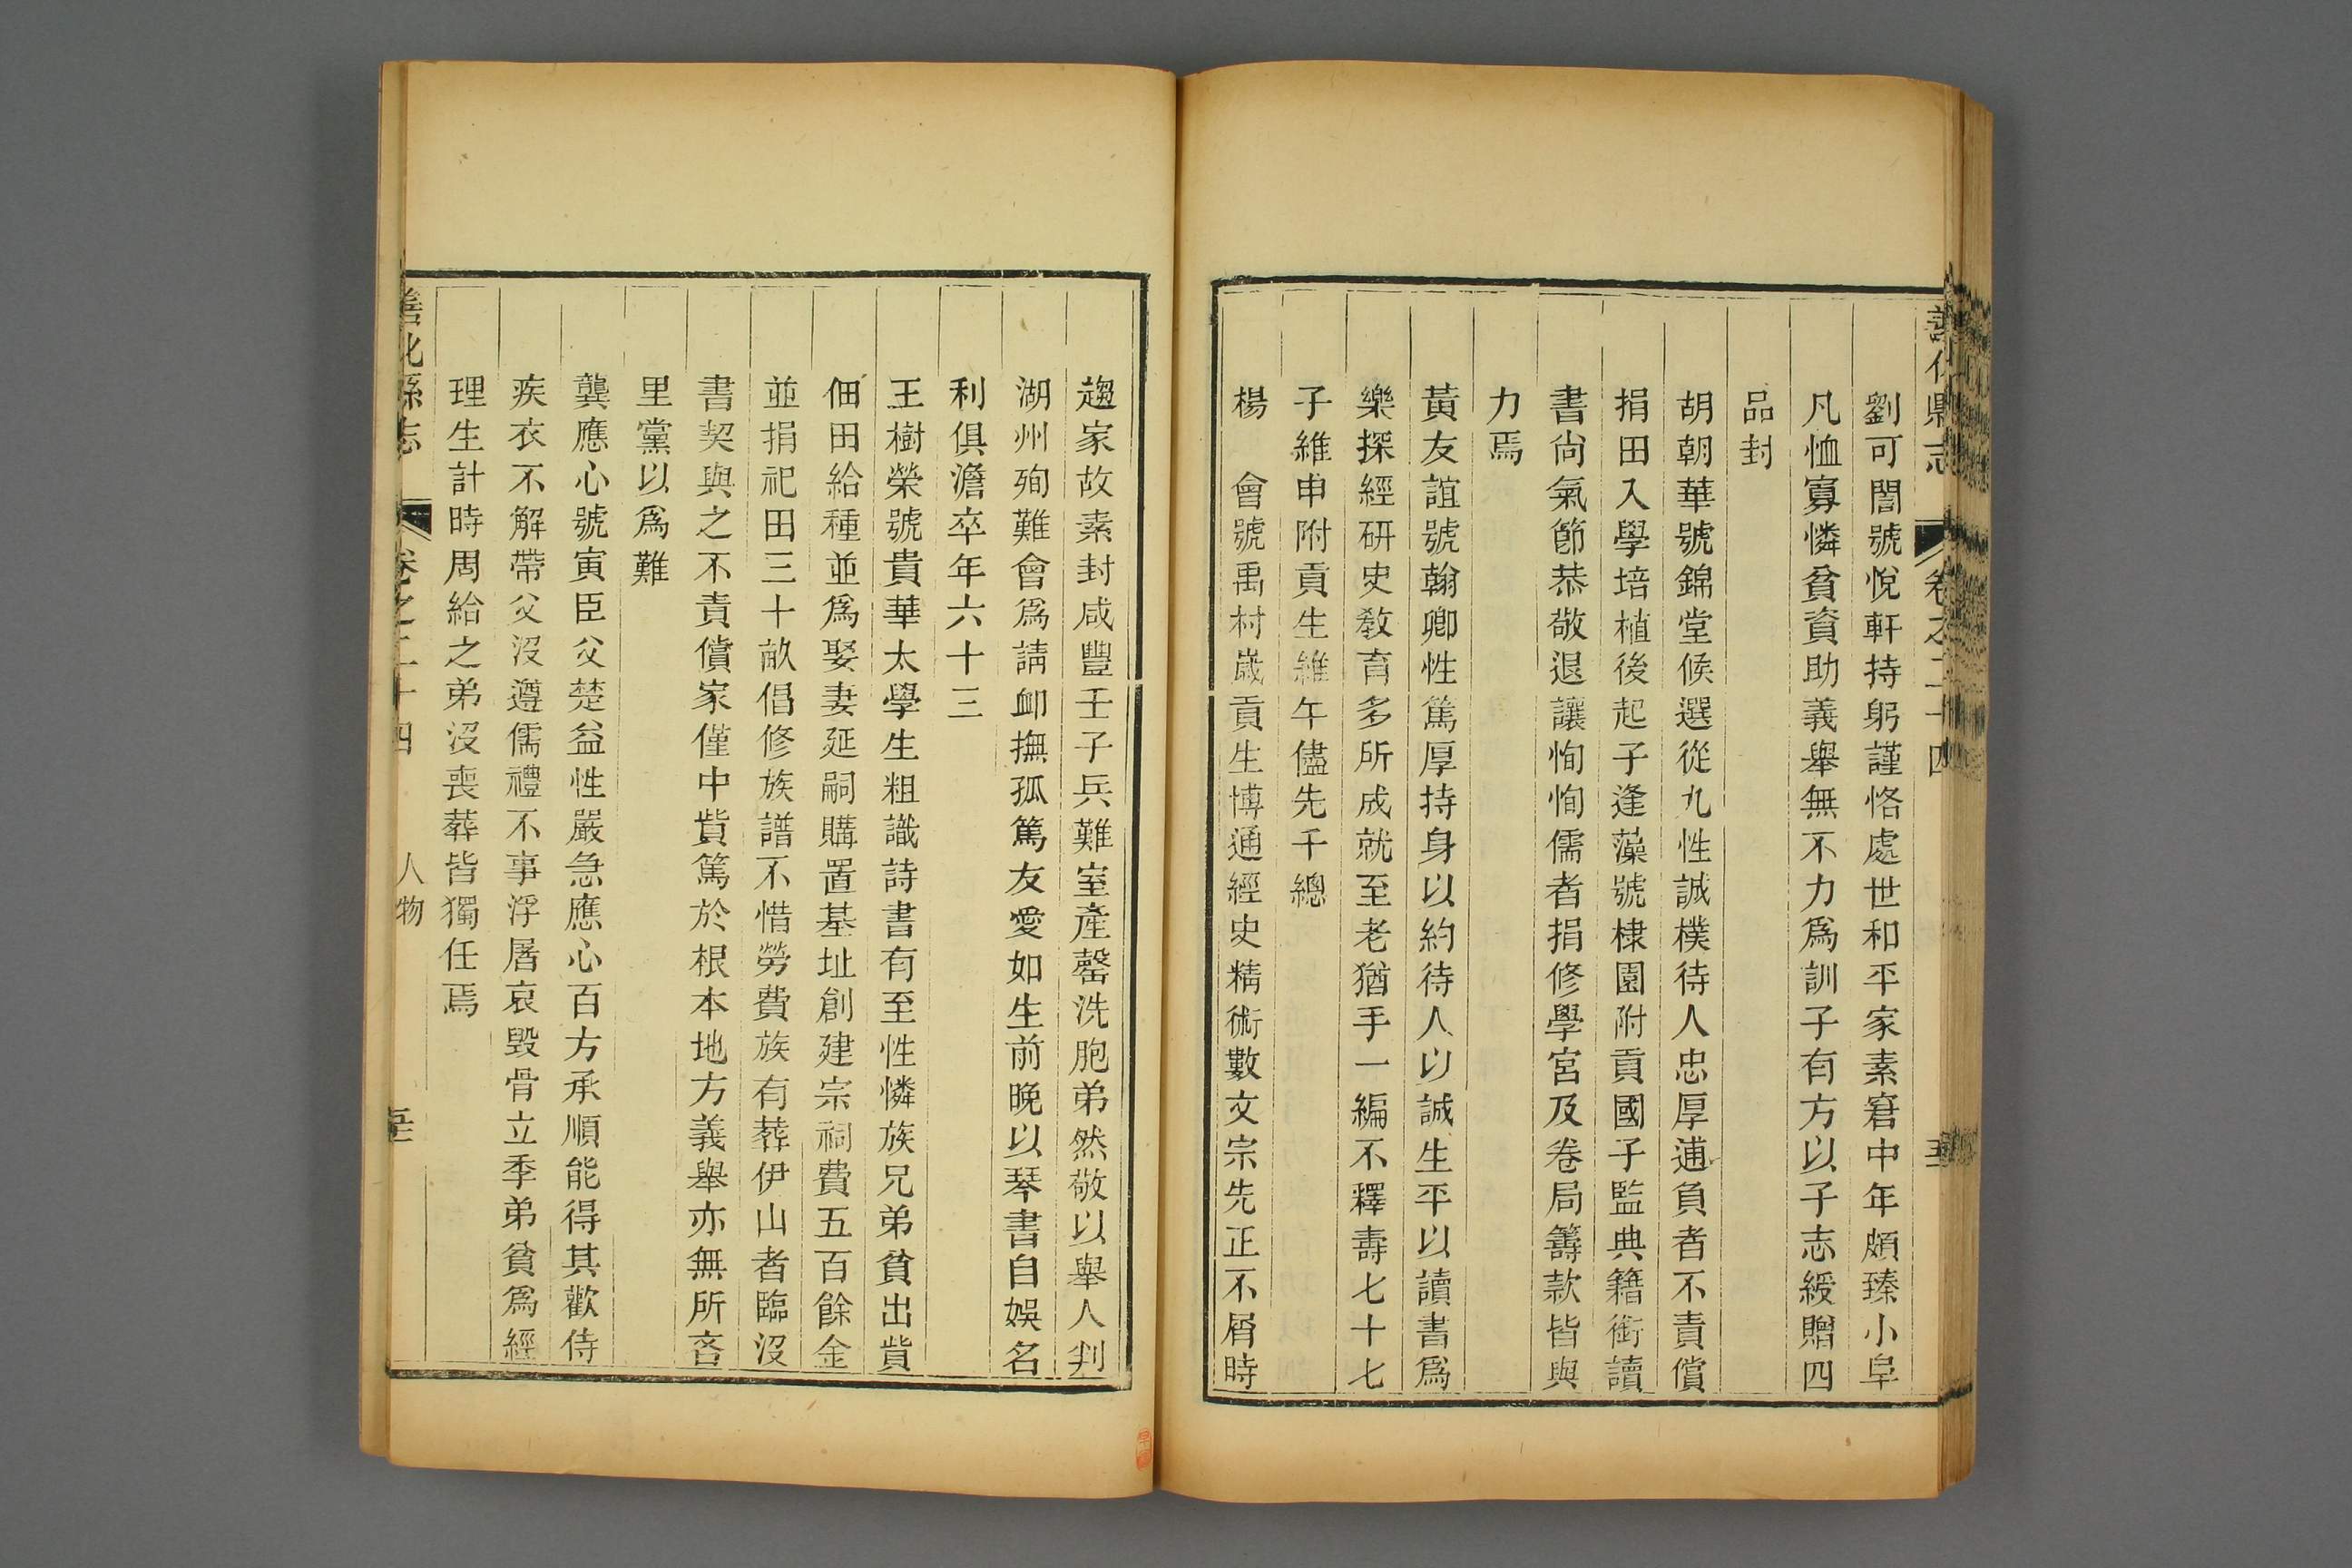 善化縣志 卷之二十四
劉可誾號悅軒持躬謹恪處世和平家素窘中年頗臻小阜
凡恤寡憐貧資助義舉無不力爲訓子有方以子志綬贈四
品封
胡朝華號錦堂候選從九性誠樸待人忠厚逋負者不責償
捐田入學培植後起子逢藻號棣園附貢國子監典籍銜讀
書尙氣節恭敬退讓恂恂儒者捐修學宮及卷局籌款皆與
力焉
黃友誼號翰卿性篤厚持身以約待人以誠生平以讀書爲
樂探經硏史敎育多所成就至老猶手一編不釋壽七十七
子維申附貢生維午儘先千總
楊 會號禹村歲貢生博通經史精術數文宗先正不屑時
趨家故素封咸豐壬子兵難室產罄洗胞弟然敬以舉人判
湖州殉難會爲請卹撫孤篤友愛如生前晚以琴書自娛名
利俱澹卒年六十三
王樹榮號貴華太學生粗識詩書有至性憐族兄弟貧出貲
佃田給種並爲娶妻延嗣購置基址創建宗祠費五百餘金
並捐祀田三十畝倡修族譜不惜勞費族有葬伊山者臨沒
書契與之不責償家僅中貲篤於根本地方義舉亦無所吝
里黨以爲難
龔應心號寅臣父楚益性嚴急應心百方承順能得其歡侍
疾衣不解帶父沒遵儒禮不事浮屠哀毀骨立季弟貧爲經
理生計時周給之弟沒喪葬皆獨任焉
善化縣志 卷之二十四 人物